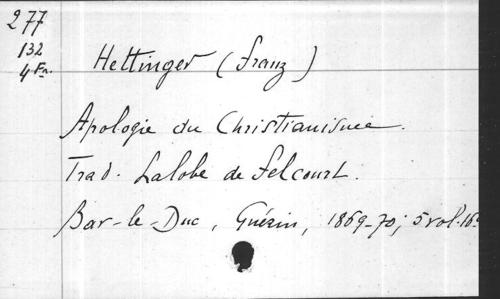 277
132
4º Fr.
Hettinger (Franz)
Apologie du Christianisme.
Trad. Lalobe de Felcourt.
Bar-le-Duc, Guérin, 1869-70; 5 vol. 16º